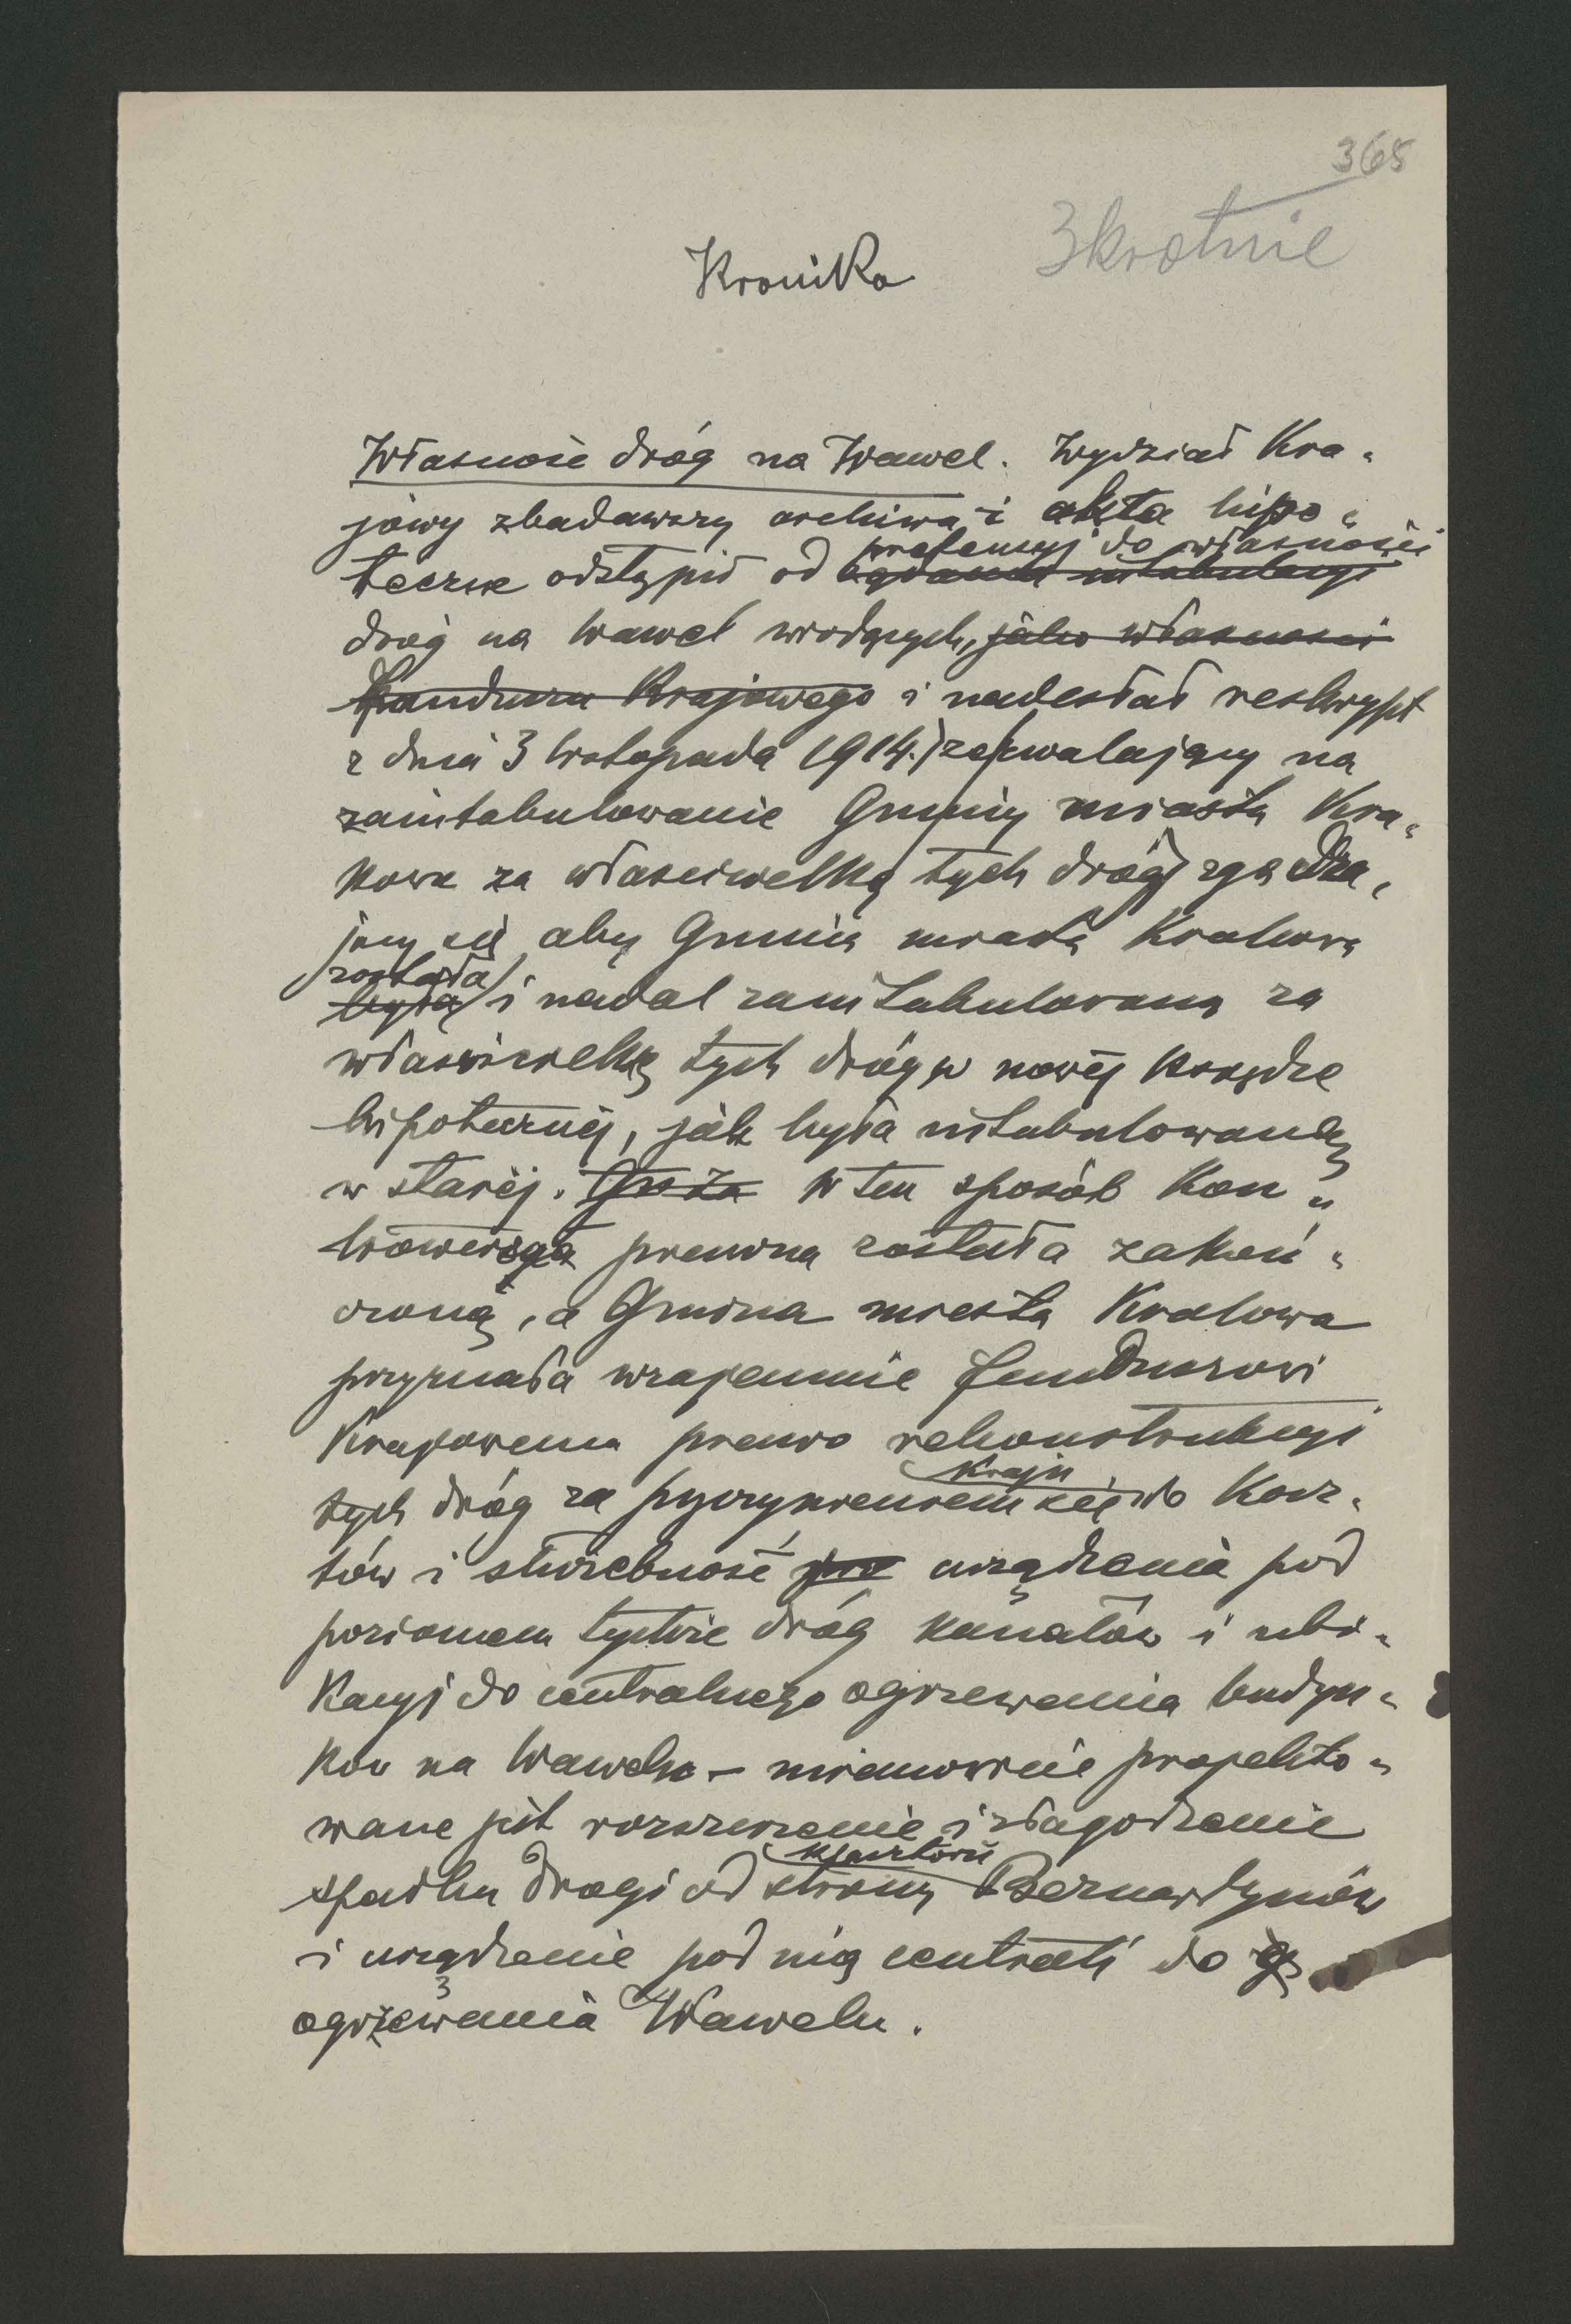 365
3krotnie
Kronika
Własność dróg na Wawel. Wydział Kra-
jowy zbadawszy archiwa i akta hipo-
pretensyj do własności
teczne odstąpił od żądania intabulacyi
dróg na Wawel wiodących, jako własności
Funduszu Krajowego i nadesłał reskrypt
z dnia 3 listopada 1914. zezwalający na
zaintabulowanie Gminy miasta Kra-
kowa za właścicielkę tych dróg zgadza-
jący się aby Gmina miasta Krakowa
została
była i nadal zaintabulowaną za
właścicielkę tych dróg w nowej księdze
hipotecznej, jak była intabulowaną
w starej. W ten sposób kon-
trowersya prawna została zakoń-
czoną, a Gmina miasta Krakowa
przyznała wzajemnie Funduszowi
Krajowemu prawo rekonstrukcyi
Kraju
tych dróg za przyczynieniem się do kosz-
tów i służebność urządzenia pod
poziomem tychże dróg kanałów i ubi-
kacyj do centralnego ogrzewania budyn-
ków na Wawelu – mianowicie projekto-
wane jest rozszerzenie i złagodzenie
klasztoru
spadku drogi od strony Bernardynów
i urządzenie pod nią centrali do
ogrzewania Wawelu.